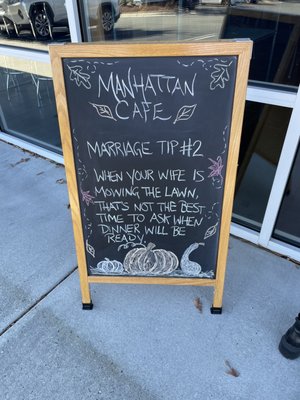 MANHATTAN
CAFE
MARRIAGE TIP #2
WHEN YOUR WIFE IS
MOWING THE LAWN,
THAT'S NOT THE BEST
TIME TO ASK WHEN
DINNER WILL BE
READY